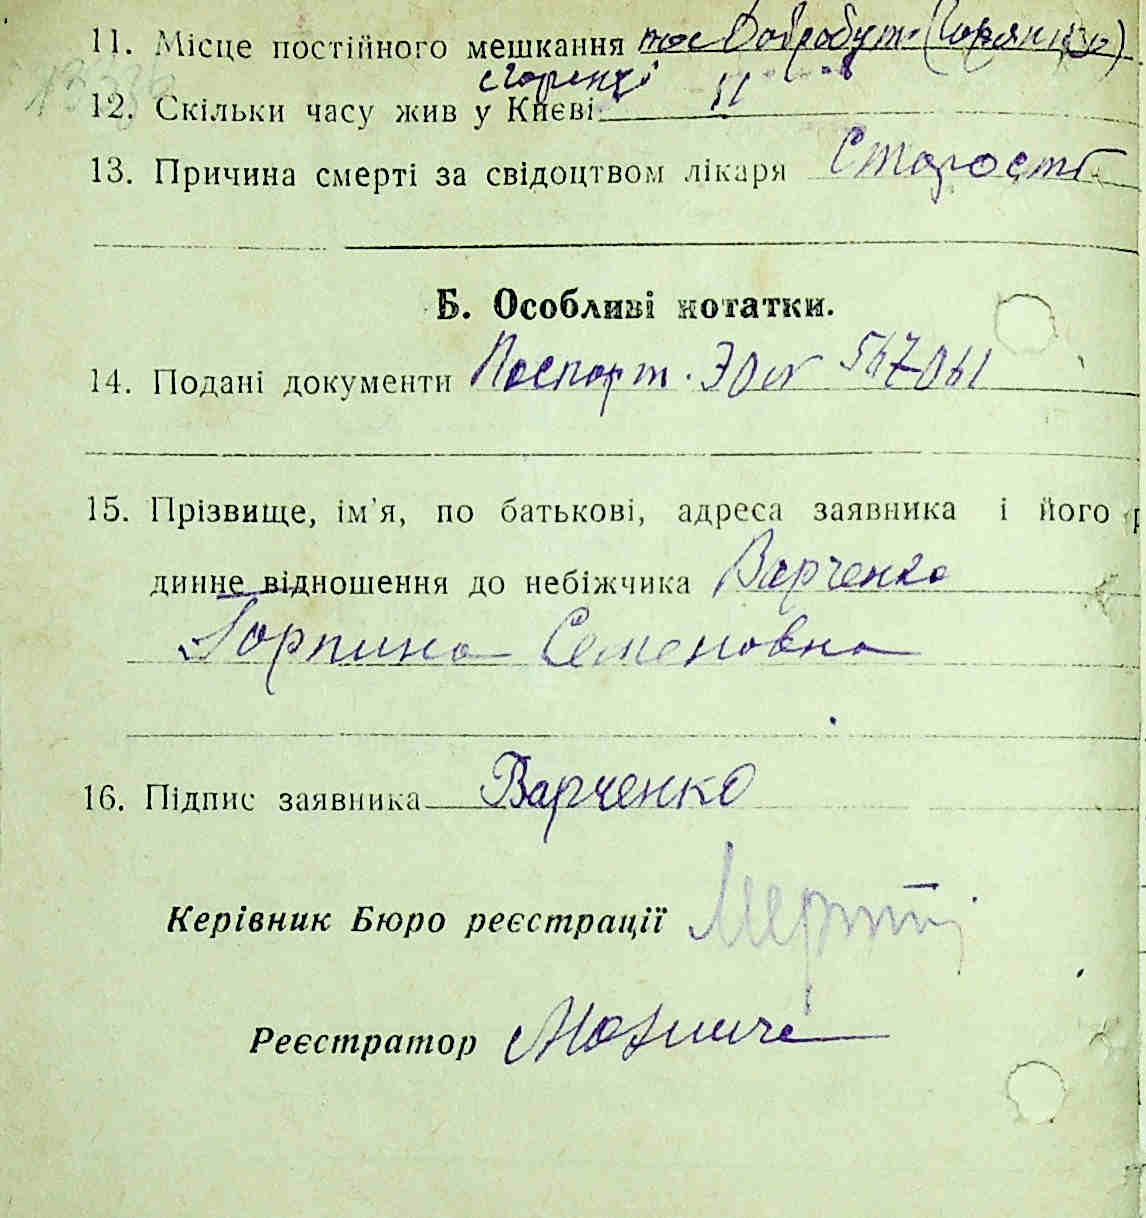 11. Місце постійного мешкання Добробут (Горянци)
12. Скільки часу жив у Києві
13. Причина смерті за свідоцтвом лікаря Старость
Б. Особливі нотатки.
14. Подані документи Паспорт. 567061
15. Прізвище, ім'я, по батькові, адреса заявника і його р
динне відношення до небіжчика Варченко
Горпина Семеновна
16. Підпис заявника Варченко
Керівник Бюро реєстрації
Реєстратор